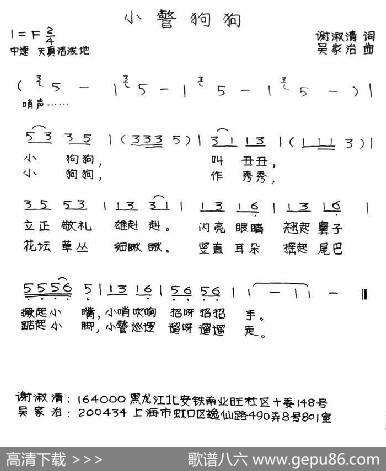 小警狗狗
1=F 2/4
中速 天真活泼地
谢淑清 词
吴家治 曲
( 5 - | 5 - | 5 - | 5 - ) |
哨声……
5 3 3 5 | ( 3 3 3 5 ) | 3 1 1 3 | ( 1 1 1 3 ) |
小 狗狗, 叫 丑丑。
小 狗狗, 作 秀秀,
3 5 5 3 | 1 3 3 1 | 1 3 1 6 | 1 3 1 6 |
立正 敬礼 雄赳 赳。 闪亮 眼睛 翘起 鼻子
花坛 草丛 细瞅 瞅。 竖直 耳朵 撅起 尾巴
5 5 5 6 5 | 1 3 1 6 | 5 5 5 6 | 1 | 1 - |
撅起小 嘴,小哨吹响 招呀招招 手。
踮起小 脚,小警巡逻 遛呀遛遛 走。
谢淑清:164000黑龙江北安铁南业旺社区十委148号
吴家治:200434上海市虹口区逸仙路490弄8号801室
高清下载 >>>
歌谱八六 www.gepu86.com